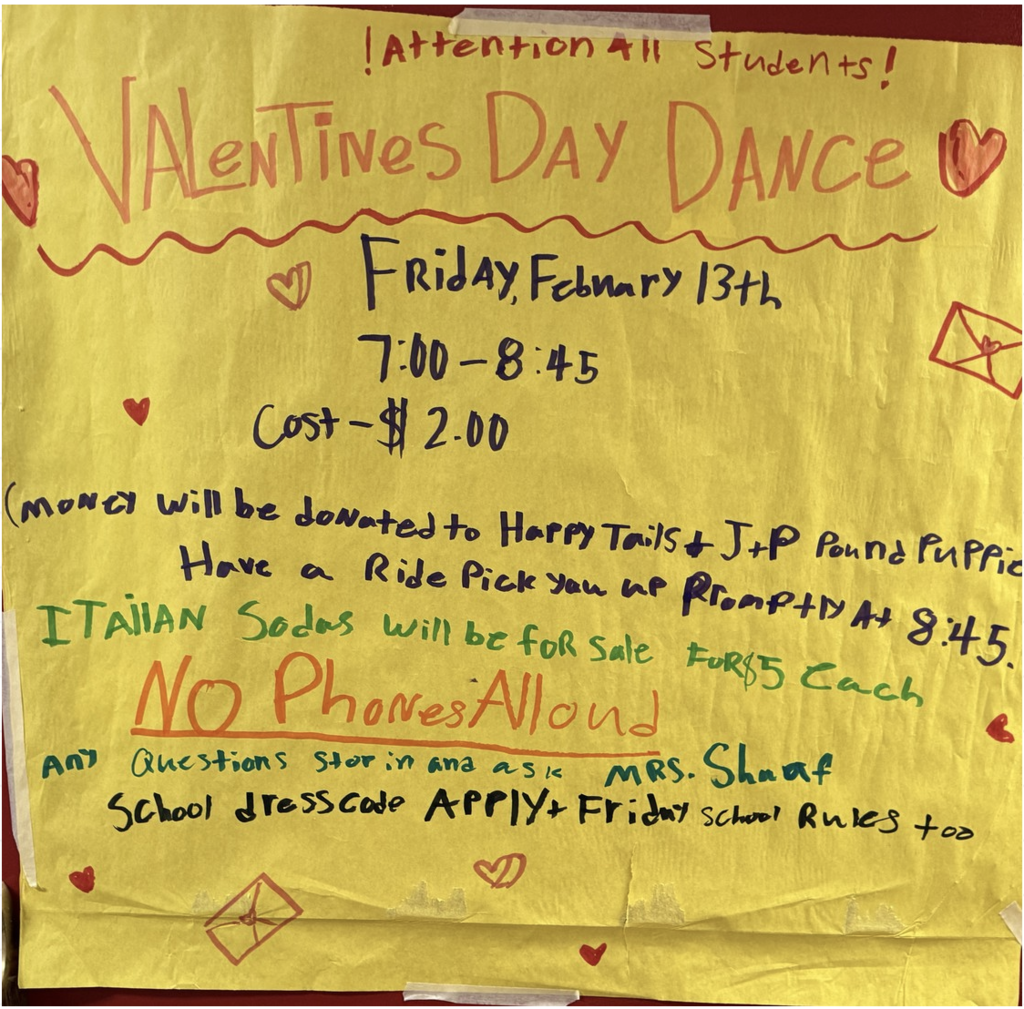 !Attention All Students!
VALenTINes DAY DANCe
FRidAY, Febnary 13th
7:00 – 8:45
Cost – $ 2.00
(money will be donated to Happy Tails + J+P Pound Puppie
Have a Ride Pick you up Promptly At 8:45.
ITAlIAN Sodas will be foR sale FoR $5 each
NO PhoNes Alloud
Any Questions stor in and ask MRS.
School dresscode APPLY + Friday school Rules too